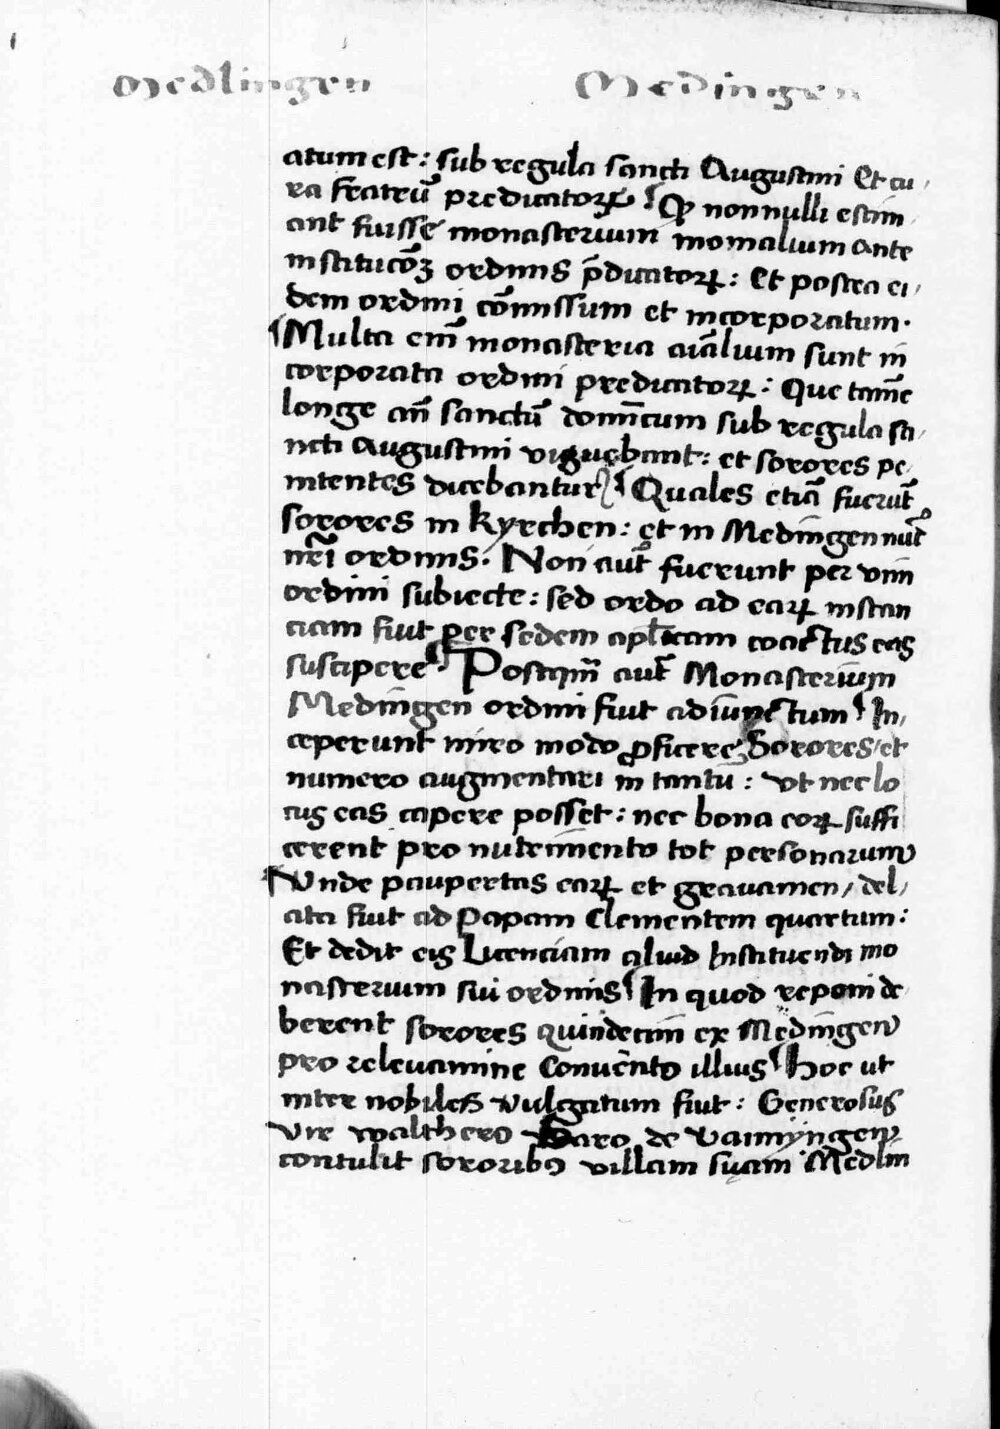 Medlingen Medingen
atum est: sub regula sancti Augustini Et cu,
ra fratrū predicatoꝝ Qꝫ nonnulli estim
ant fuisse monasterium monialium ante
institucōꝫ ordinis p̄dicatoꝝ: Et postea ei,
dem ordini cōmissum et incorporatum.
Multa em̄ monasteria aīalium sunt in
corporata ordini predicatoꝝ: Que tamē
longe an̄ sanctū domīcum sub regula sa,
ncti Augustini vigebant: et sorores pe,
nitentes dicebantur Quales etiā fuerūt
sorores in Kyrchen: et in Medingen nūc
nr̄i ordinis. Non aūt fuerunt per vim
ordini subiecte: sed ordo ad eaꝝ instan
ciam fuit per sedem apl̄icam coactus eas
suscipere Postqm̄ aūt Monasterium
Medingen ordini fuit adiunctum In,
ceperunt miro modo ꝓficere Sorores, et
numero augmentari in tantū: vt nec lo
cus eas capere posset: nec bona eoꝝ suffi
cerent pro nutrimento tot personarum
Vnde paupertas eaꝝ et grauamen, del,
ata fuit ad papam Clementem quartum:
Et dedit eis Licenciam aliud Instituendi mo
nasterium sui ordinis In quod reponi de,
berent sorores quindecim ex Medingen
pro releuamine Conuēnto illius hoc ut
inter nobiles vulgatum fuit: Generosus
vir walthero Baro de vaimyngen
contulit sororibꝰ villam suam Medlin